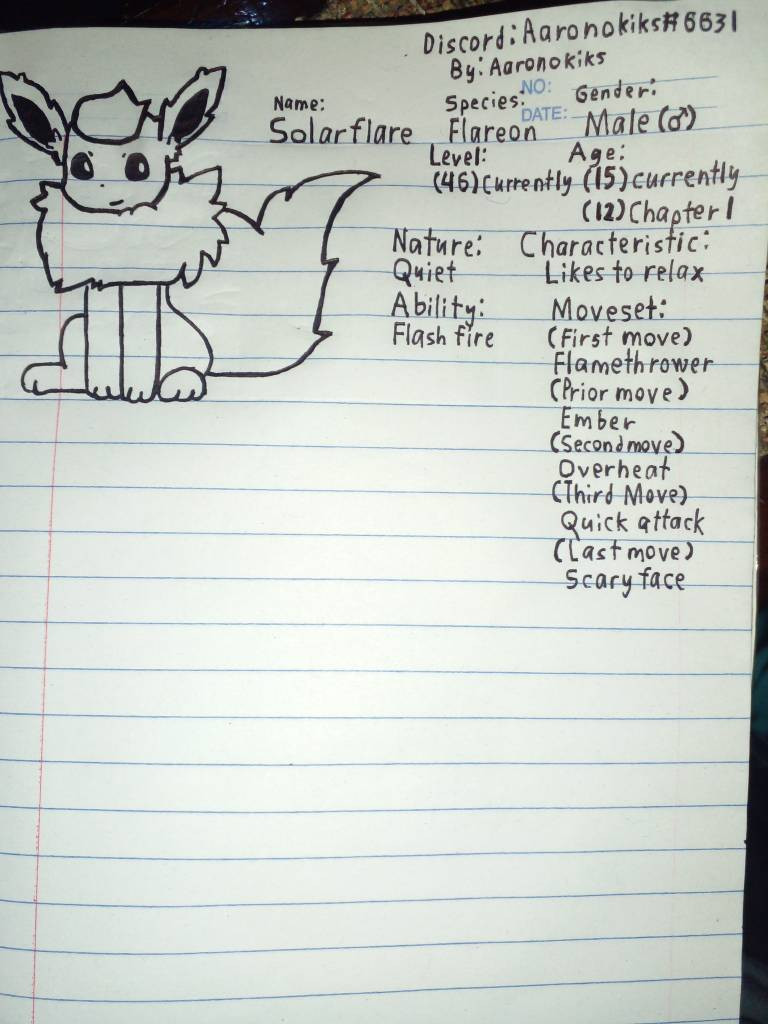 Discord: Aaronokiks#6631
By: Aaronokiks
NO:
DATE:
Name:
Solarflare
Species:
Flareon
Gender:
Male (♂)
Level:
(46) Currently
Age:
(15) currently
(12) Chapter 1
Nature:
Quiet
Characteristic:
Likes to relax
Ability:
Flash fire
Moveset:
(First move)
Flamethrower
(Prior move)
Ember
(Second move)
Overheat
(Third Move)
Quick attack
(Last move)
Scary face